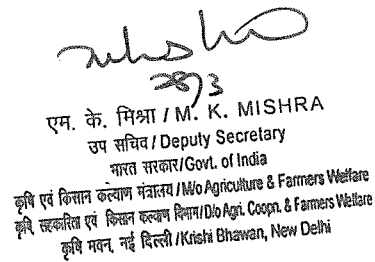 28/3
एम. के. मिश्रा / M. K. MISHRA
उप सचिव / Deputy Secretary
भारत सरकार/Govt. of India
कृषि एवं किसान कल्याण मंत्रालय / M/o Agriculture & Farmers Welfare
कृषि, सहकारिता एवं किसान कल्याण विभाग/D/o Agri. Coopn. & Farmers Welfare
कृषि भवन, नई दिल्ली / Krishi Bhawan, New Delhi